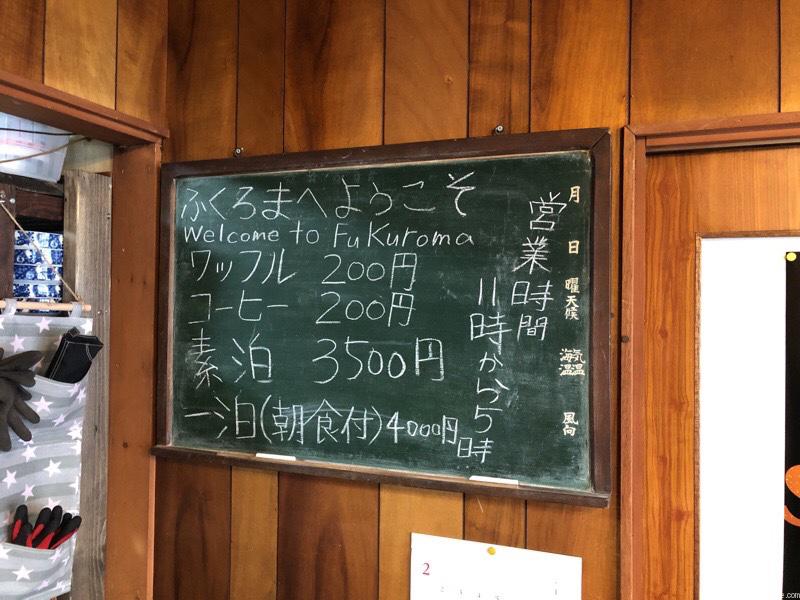 ふくろまへようこそ
Welcome to FuKuroma
ワッフル 200円
コーヒー 200円
素泊 3500円
一泊(朝食付)4000円
営業時間
11時から5時
月
日
曜
天候
気温
海温
風向
2